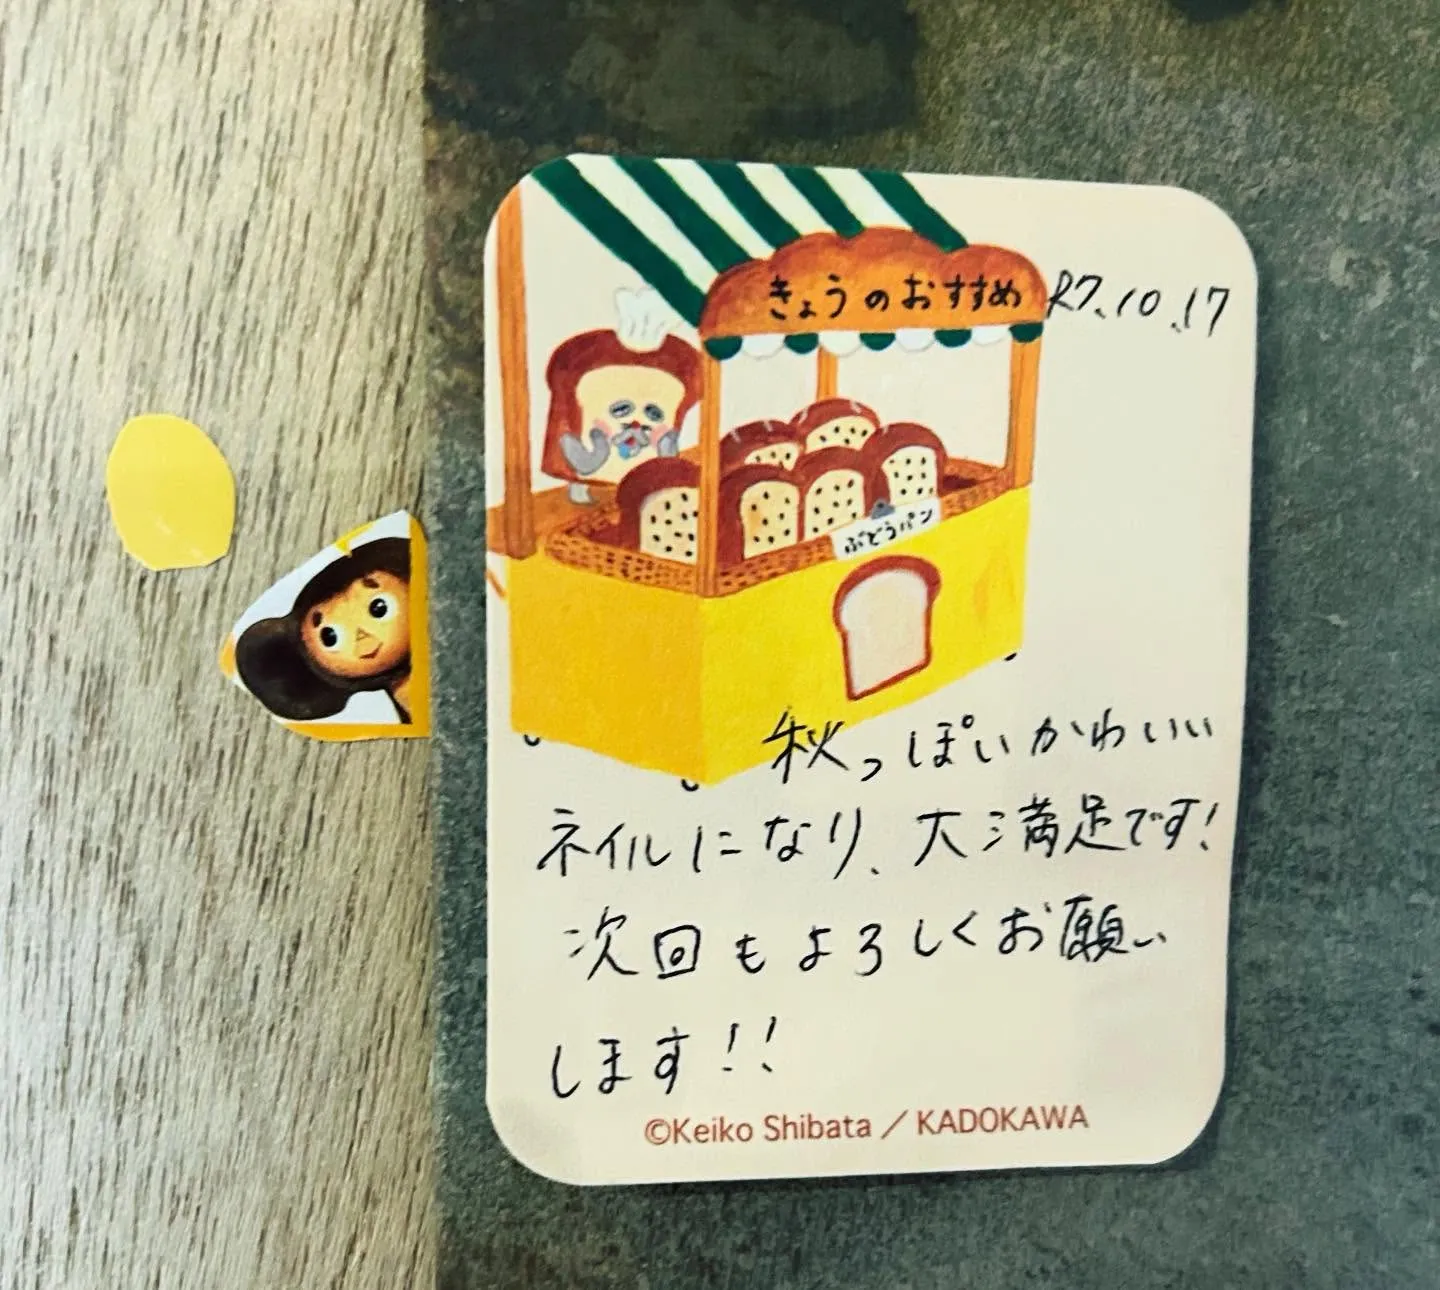 きょうのおすすめ R7.10.17
ぶどうパン
秋っぽいかわいい
ネイルになり、大満足です!
次回もよろしくお願い
します!!
©Keiko Shibata／KADOKAWA